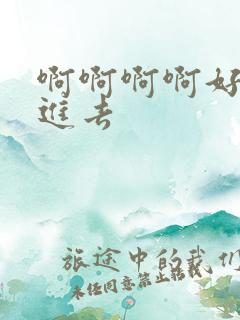 啊啊啊啊好
进去
旅途中的我们
未经同意禁止转载